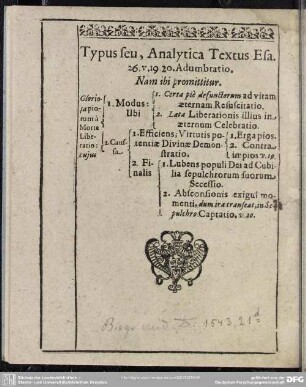 Typus seu, Analytica Textus Esa.
26. v. 19 20. Adumbratio.
Nam ibi promittitur.
Glorio-
sa pio-
rum à
Morte
Libe-
ratio:
cujus
1. Modus:
Ubi
1. Certa piè defunctorum ad vitam
æternam Resuscitatio.
2. Lata Liberationis illius in
æternum Celebratio.
2. Caus-
sa
1. Efficiens; Virtutis po-
tentiæ Divinæ Demon-
stratio.
1. Erga pios.
2. Contra
impios v. 19.
2. Fi-
nalis
1. Lubens populi Dei ad Cubi-
lia sepulchrorum suorum
Secessio.
2. Absconsionis exigui mo-
menti, dum ira transeat, in Se-
pulchro Captatio, v. 20.
1543, 21
DFG